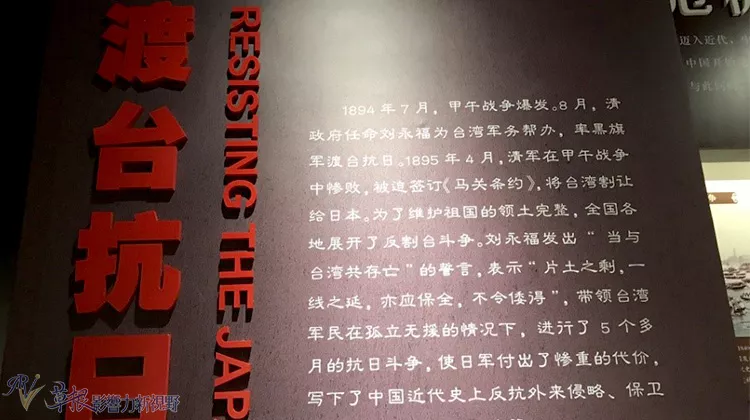 渡台抗日
RESISTING THE JAP
1894 年 7 月，甲午战争爆发。8 月，清
政府任命刘永福为台湾军务帮办，率黑旗
军渡台抗日。1895 年 4 月，清军在甲午战争
中惨败，被迫签订《马关条约》，将台湾割让
给日本。为了维护祖国的领土完整，全国各
地展开了反割台斗争。刘永福发出“当与
台湾共存亡”的誓言，表示“片土之剩，一
线之延，亦应保全，不令倭得”，带领台湾
军民在孤立无援的情况下，进行了 5 个多
月的抗日斗争，使日军付出了惨重的代价，
写下了中国近代史上反抗外来侵略、保卫
迈入近代，
中国开始
影響力新視野